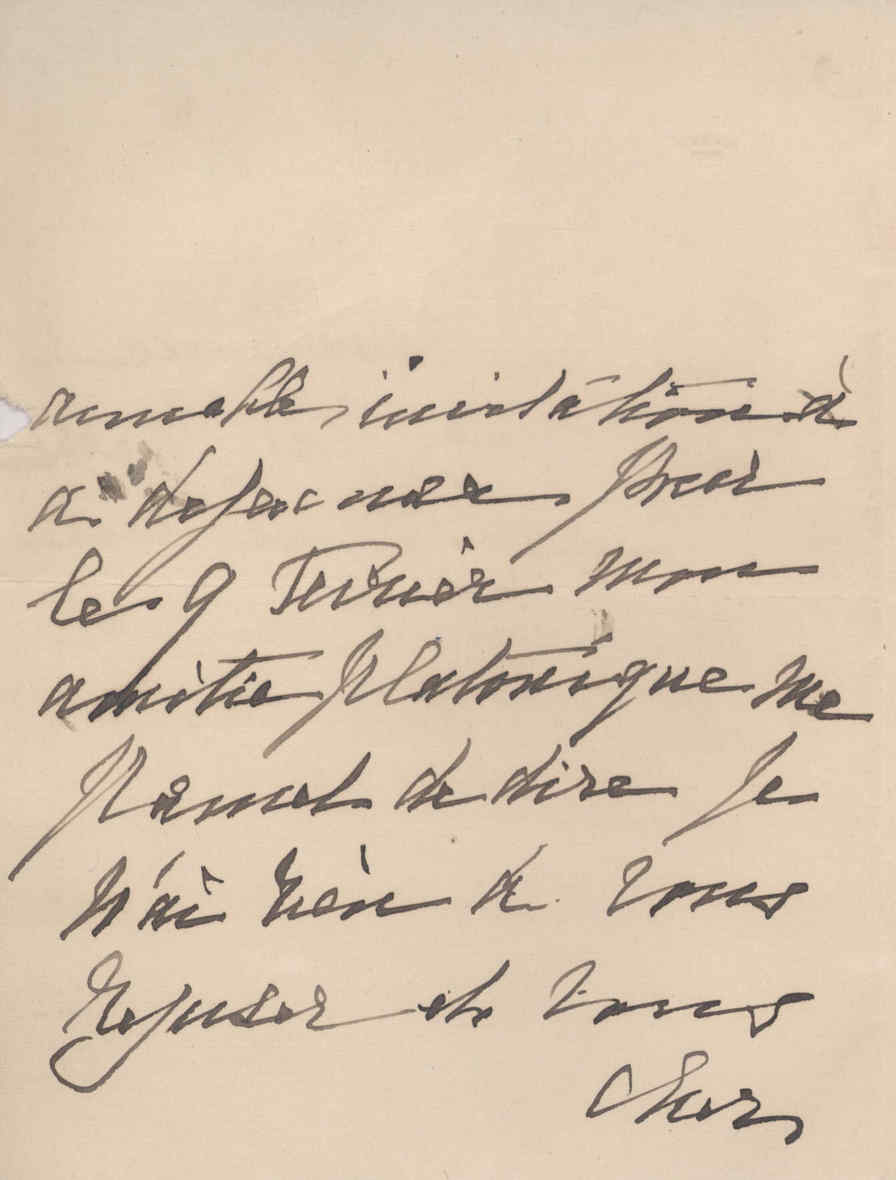 aimable invitation à
a dejeuner pour
le 9 Fevrier mon
amitie platonique me
permet de dire Je
n'ai rien a vous
refuser et vous
cher